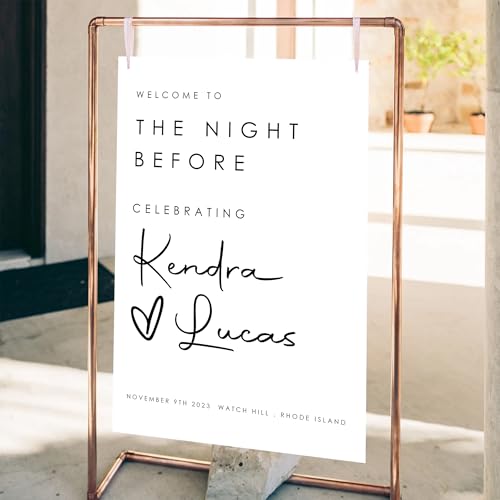 WELCOME TO
THE NIGHT
BEFORE
CELEBRATING
Kendra
♡ Lucas
NOVEMBER 9TH 2023 WATCH HILL , RHODE ISLAND